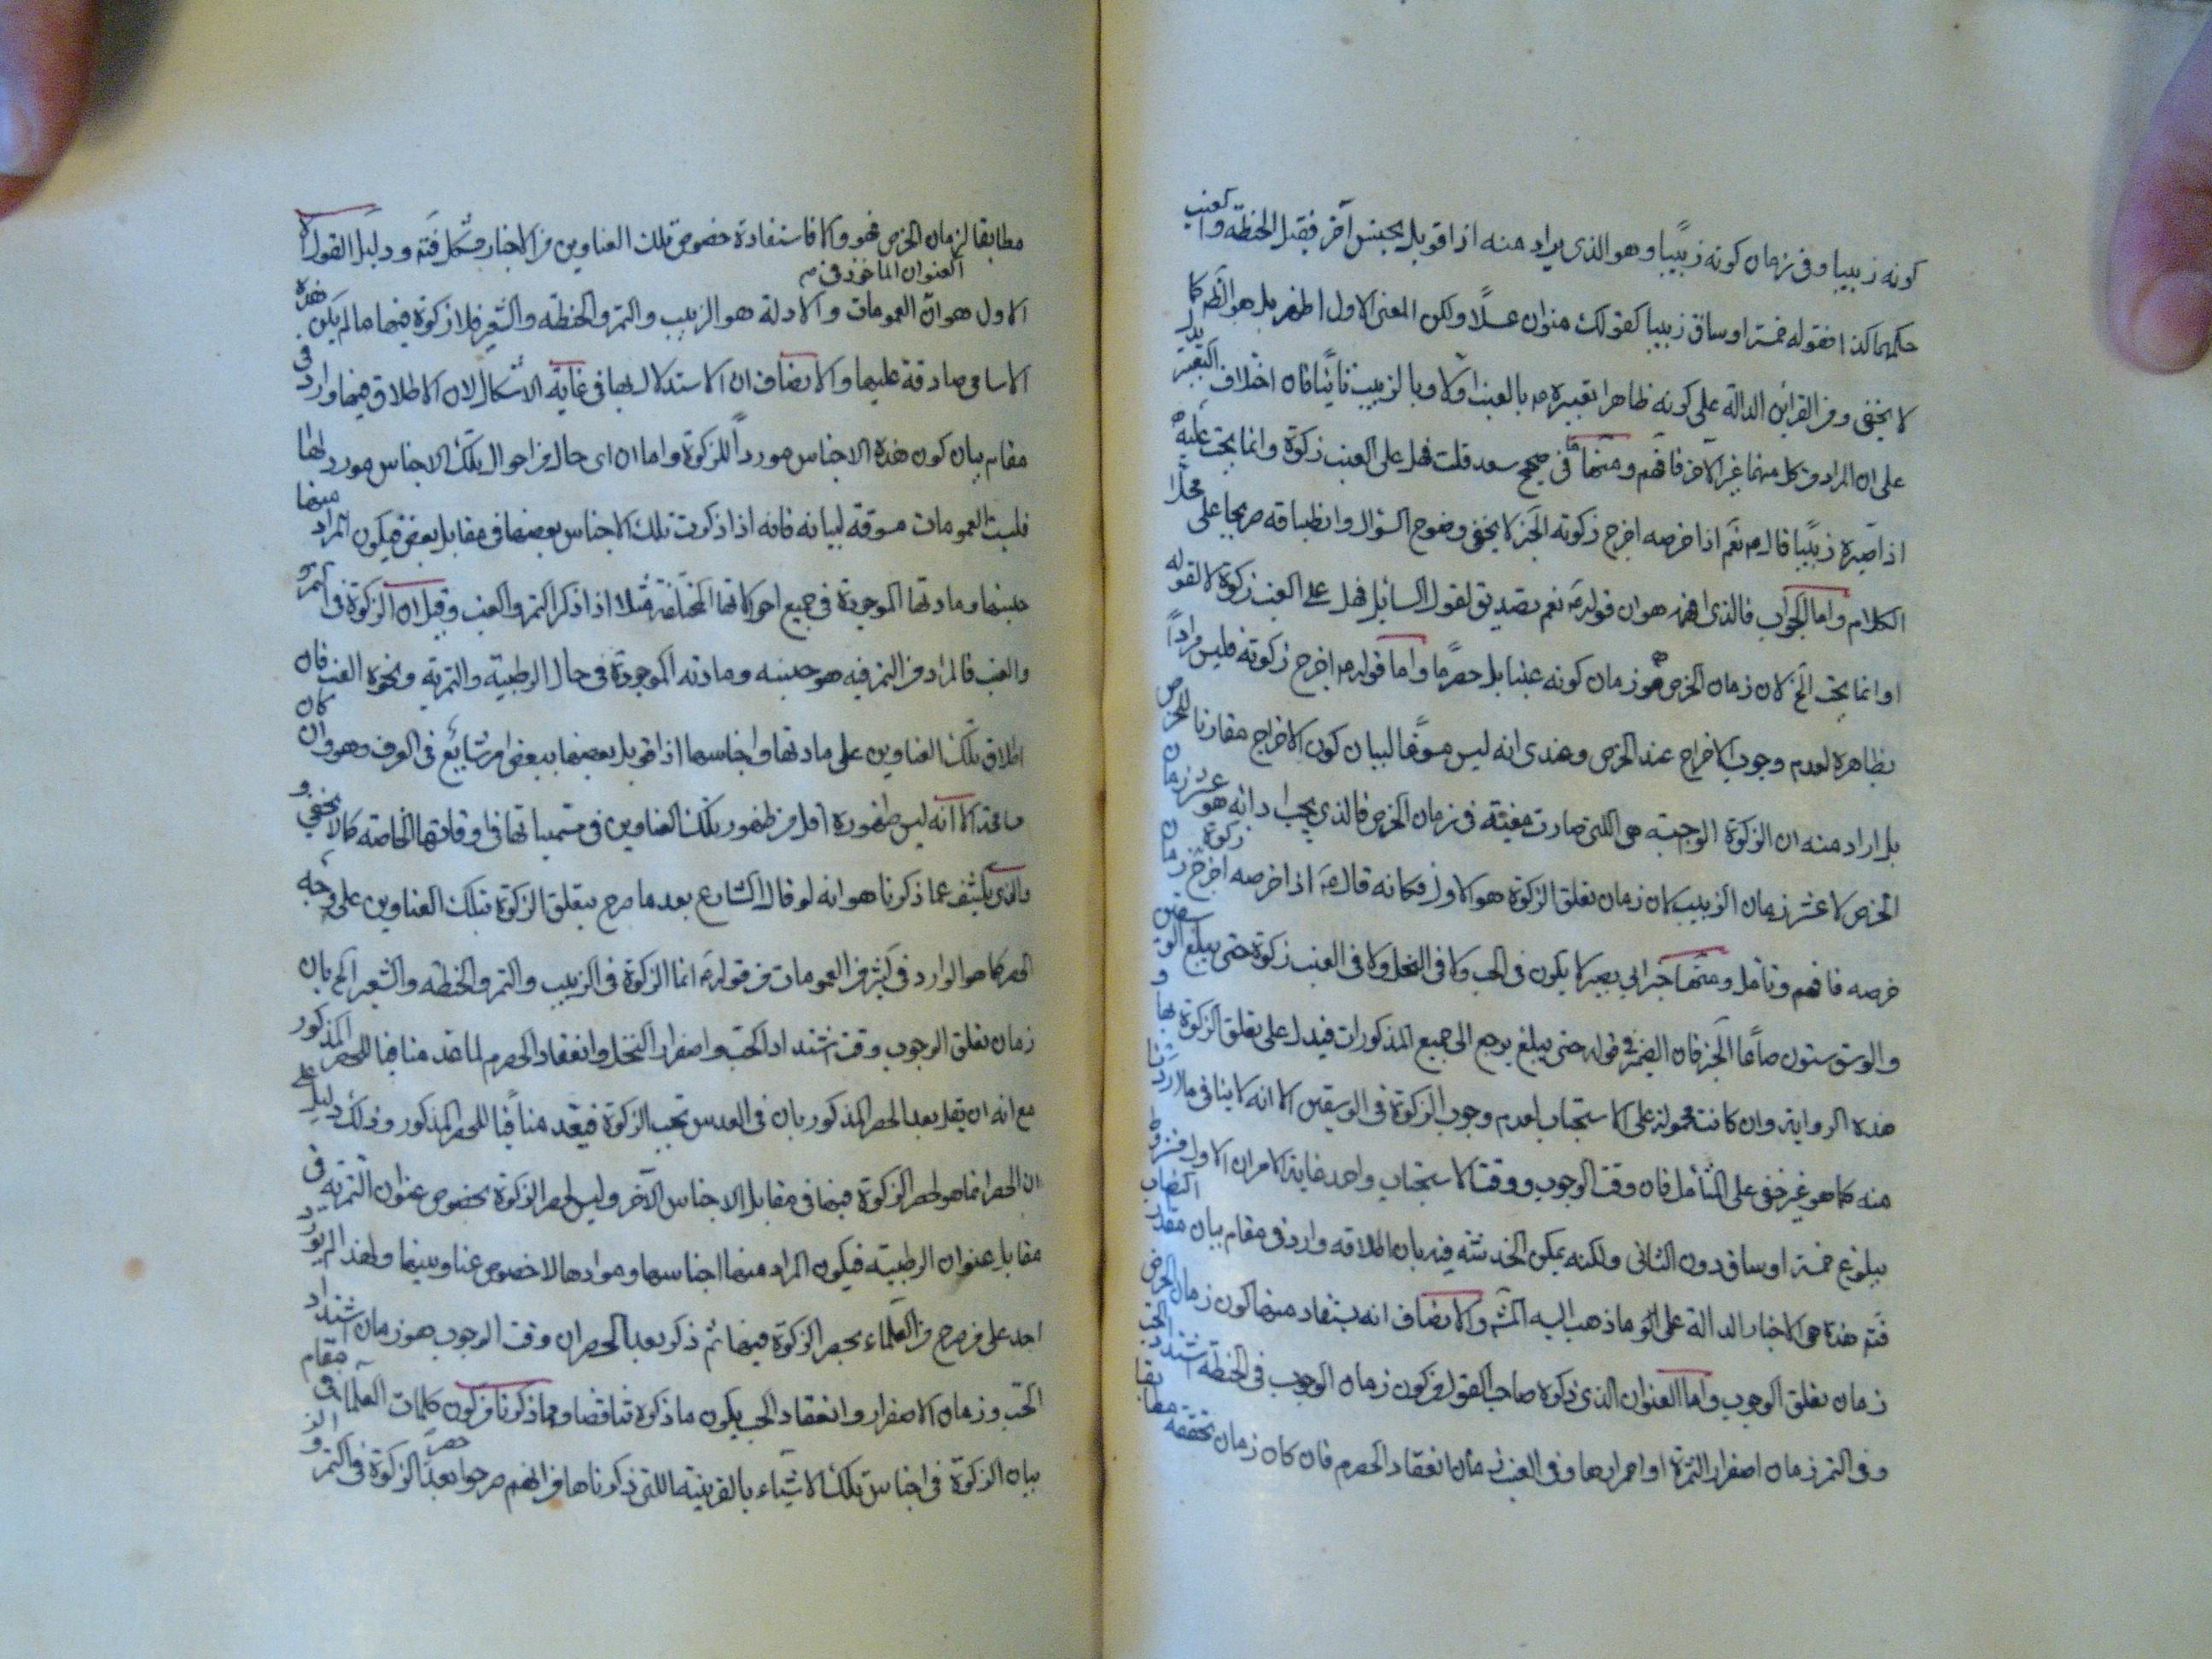 كونه زبيبا وفى زمان كونه زبيبًا وهو الذى يراد منه اذا قوبل بجنس آخر فقيل الحنطة والعنب
حكمهما كذا فقوله خمسة اوساق زبيبا كقولك منوان عسلًا ولكن المعنى الاول اظهر بل هو الظهر كما
لا يخفى ومن القراين الدالة على كونه ظاهرا تعبيره بالعنب اولا وبالزبيب ثانيًا فان اختلاف التعبير يدل
على ان المراد من كل منهما غير الآخر فافهم ومنها ما فى صحيح سعد قلت فهل على العنب زكوة وانما يجب عليه
اذا صيره زبيبًا قال نعم اذا خرصه اخرج زكوته الخبر لا يخفى وضوح السؤال وانطباقه صريحا على محل
الكلام واما الجواب فالذى افهمه هو ان قوله نعم تصديق لقول السائل فهل على العنب زكوة لا لقوله
او انما يجب الخ لان زمان الخرص هو زمان كونه عنبا بل حصرمًا واما قوله اخرج زكوته فليس مرادًا
بظاهره لعدم وجوب الاخراج عند الخرص وعندى انه ليس مسوقًا لبيان كون الاخراج مقارنا للخرص
بل اراد منه ان الزكوة الوجبته هى اللتى صارت معينة فى زمان الخرص فالذى يجب ادانه هو عشر زمان
الخرص لا عشر زمان الزبيب كان زمان تعلق الزكوة هو الاول فكانه قال اذا خرصه اخرج زكوة زمان
خرصه فافهم وتامل ومنها خبر ابي بصير لا يكون فى الحب ولا فى النخل ولا فى العنب زكوة حتى يبلغ وسقين
والوسق ستون صاعا الخبر فان الضمير فى قوله حتى يبلغ يرجع الى جميع المذكورات فيدل على تعلق الزكوة بها و
هذه الرواية وان كانت محمولة على الاستحباب لعدم وجوب الزكوة فى الوسقين الا انه لا ينافى ما اردنا
منه كما هو غير خفى على المتأمل فان وقت الوجوب ووقت الاستحباب واحد غاية الامر ان الاول مشروط
ببلوغ خمسة اوساق دون الثانى ولكنه يمكن الخدشة فيه بان اطلاقه وارد فى مقام بيان مقدار النصاب
فتم هذه هى الاخبار الدالة على ما ذهب اليه المشهور والانصاف انه يستفاد منها كون زمان الخرص
زمان تعلق الوجوب واما العنوان الذى ذكره صاحب القول من كون زمان الوجوب فى الحنطة اشتداد الحب
وفى التمر زمان اصفرار الثمرة او احمرارها وفى العنب زمان انعقاد الحصرم فان كان زمان تحققه مطابقا
مطابقا لزمان الخرص فهو والا فاستفادة خصوص تلك العناوين من الاخبار مشكل فتم ودليل القول
العنوان الماخوذ فى
الاول هو ان العمومات والادلة هو الزبيب والتمر والحنطة والشعير فلا زكوة فيها ما لم يكن هذه
الاسامى صادقة عليها والانصاف ان الاستدلال بها فى غاية الاشكال لان الاطلاق فيها وارد فى
مقام بيان كون هذه الاجناس موردًا للزكوة واما ان اى حال من احوال تلك الاجناس مورد لها
فليست العمومات مسوقة لبيانه فانه اذا ذكرت تلك الاجناس بعضها فى مقابل بعض فيكون المراد منها
جنسها ومادتها الموجودة فى جميع احوالاتها المختلفة مثلا اذا ذكر التمر والعنب وقيل ان الزكوة فى التمر
والعنب فالمراد من التمر فيه هو جنسه ومادته الموجودة فى حال الرطبية والتمرية ونحوه العنب فان
اطلاق تلك العناوين على مادتها واجناسها اذا قوبل بعضها ببعض امر شايع فى العرف وهو وان كان
الا انه ليس ظهوره اقل من ظهور تلك العناوين فى مسمياتها فى اوقاتها الخاصة كما لا يخفى و
والذى يكشف عما ذكرنا هو انه لو قال الشارع بعد ما صرح بتعلق الزكوة بتلك العناوين على وجه
الحصر كما هو الوارد فى كثير من العمومات من قوله انما الزكوة فى الزبيب والتمر والحنطة والشعير الخ بان
زمان تعلق الوجوب وقت اشتداد الحب واصفرار النخل وانعقاد الحصرم لما عد منافيا للحصر المذكور
مع انه ان يقل بعد الحصر المذكور بان فى العدس تجب الزكوة فيعد منافيًا للحصر المذكور وذلك دليل على
ان الحصر انما هو لحصر الزكوة فيها فى مقابل الاجناس الآخر وليس لحصر الزكوة بخصوص عنوان التمرية فى
مقابل عنوان الرطبية فيكون المراد منها اجناسها وموادها لا خصوص عناوينها ولهذا لم يورد
احد على من صرح من العلماء بحصر الزكوة فيها ثم ذكر بعد الحصر ان وقت الوجوب هو زمان اشتداد
الحب وزمان الاصفرار وانعقاد الحب بكون ما ذكره تناقضا وما ذكرنا من كون كلمات العلماء فى مقام
بيان الزكوة فى اجناس تلك الاشياء بالقرينة اللتى ذكرناها من انهم صرحوا بعد حصر الزكوة فى التمر و